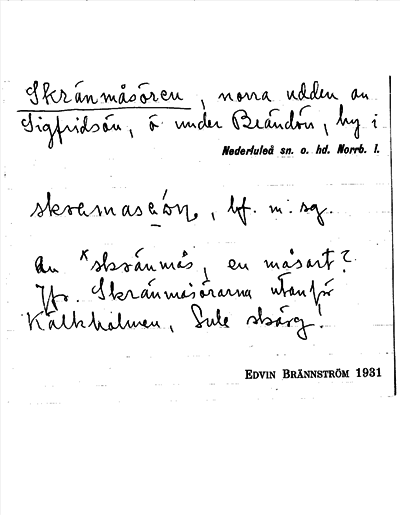 Skränmåsören, norra udden av
Sigfridsön, ö under Brändön, by i
Nederluleå sn. o. hd. Norrb. l.
bf. m. sg.
Av *skränmås, en måsart?
Jfr. Skränmåsörarna utanför
Kalkholmen, Lule skärg.
EDVIN BRÄNNSTRÖM 1931